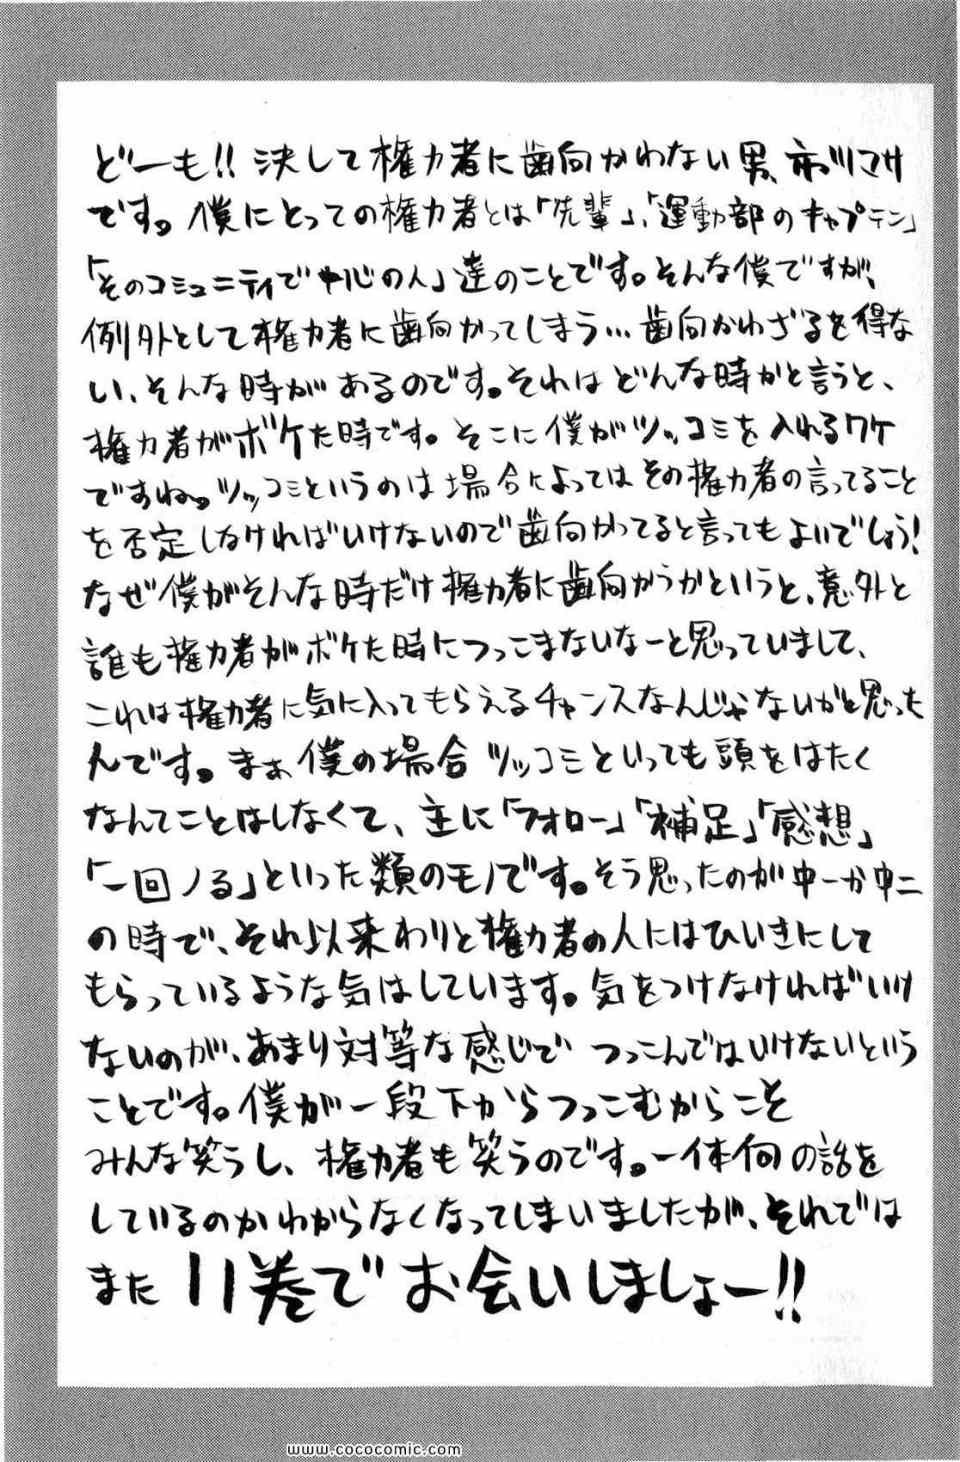 どーも!! 決して権力者に歯向かわない男、ホリマサ
です。僕にとっての権力者とは「先輩」、「運動部のキャプテン」
「そのコミュニティで中心の人」達のことです。そんな僕ですが、
例外として権力者に歯向かってしまう…歯向かわざるを得な
い、そんな時があるのです。それはどんな時かと言うと、
権力者がボケた時です。そこに僕がツッコミを入れるワケ
ですね。ツッコミというのは場合によってはその権力者の言ってること
を否定しなければいけないので歯向かってると言ってもよいでしょう!
なぜ僕がそんな時だけ権力者に歯向かうかというと、意外と
誰も権力者がボケた時につっこまないなーと思っていまして、
これは権力者に気に入ってもらえるチャンスなんじゃないかと思った
んです。まぁ僕の場合ツッコミといっても頭をはたく
なんてことはしなくて、主に「フォロー」「補足」「感想」
「一回ノる」といった類のモノです。そう思ったのが中一か中二
の時で、それ以来わりと権力者の人にはひいきにして
もらっているような気はしています。気をつけなければいけ
ないのが、あまり対等な感じでつっこんではいけないという
ことです。僕が一段下からつっこむからこそ
みんな笑うし、権力者も笑うのです。一体何の話を
しているのかわからなくなってしまいましたが、それでは
また11巻でお会いしましょー!!
www.cococomic.com